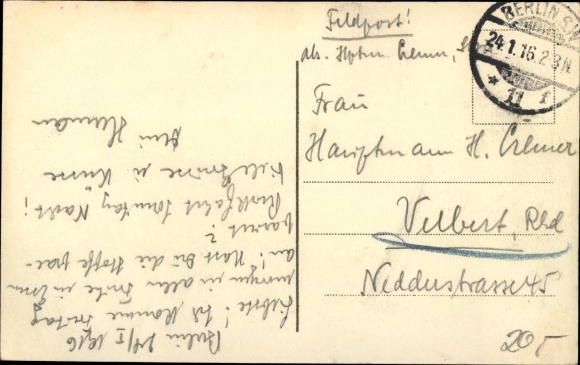 Feldpost!
Abs. Hptm. Cremer,
BERLIN S.W.
24.1.16.2-3N.
* 11 f
Frau
Hauptmann H. Cremer
Velbert, Rhld
Nedderstrasse 45
205
Berlin 24/I 1916
Liebste! Ich komme Freitag
morgen in aller Frühe in
an! Hast Du die Koffer
parat?
Rückfahrt Sonntag Nacht!
Viele Grüsse u Küsse
Dein Herman